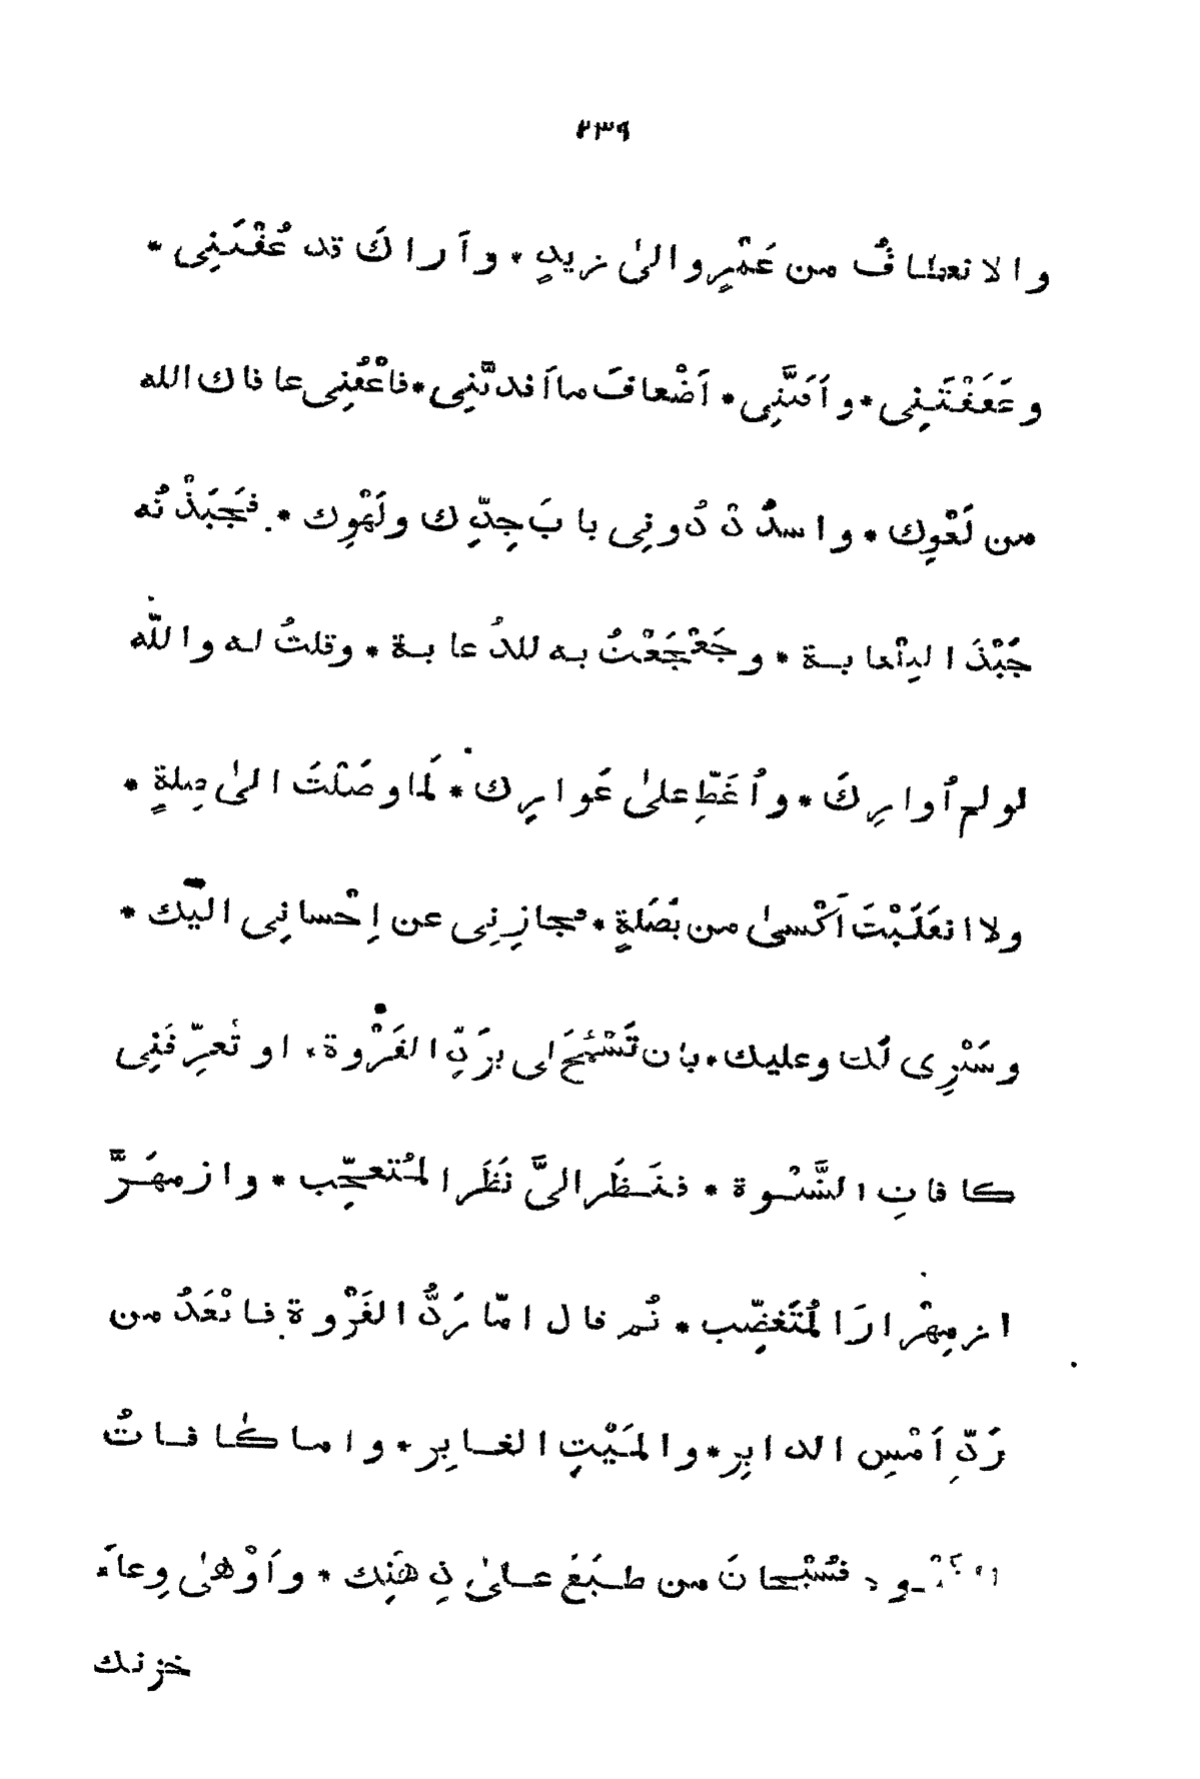 ٢٣٩
والانعطافُ من عَمْرٍو الىٰ زيدٍ * وأَراكَ قد عُقْتَنِى *
وعَقَقْتَنِى * وأَفَتَّنِى * أَضْعافَ ما أَفدتَّنِى * فاعْفُنِى عافاك الله
من لَغْوِك * واسدُدْ دُونِى بابَ جِدِّك ولَهْوِك * فجَبَذْتُه
جَبْذَ التِلْعابة * وجَعْجَعْتُ به للدُعابة * وقلتُ له واللّٰه
لو لم أُوارِكَ * وأُغَطِّ علىٰ عَوارِك * لَما وصَلْتَ الىٰ صِلةٍ *
ولا انقَلَبْتَ أَكْسىٰ من بَصَلةٍ * فجازِنِى عن إِحْسانِى اليْك *
وسَتْرِى لك وعليك * بان تَسْمَحَ لى برَدِّ الفَرْوة * او تُعرِّفَنِى
كافاتِ الشَّتْوة * فنَظَر الىَّ نَظَر المُتعجِّب * وازمهَرَّ
ازمِهْرارَ المُتَغضِّب * ثُم قال امّا رَدُّ الفَرْوة فابْعَدُ من
رَدِّ أَمْسِ الدابِر * والمَيْتِ الغابِر * واما كافاتُ
فسُبْحانَ من طبَعَ علىٰ ذِهْنِك * وأَوْهىٰ وِعاءَ
خزنك